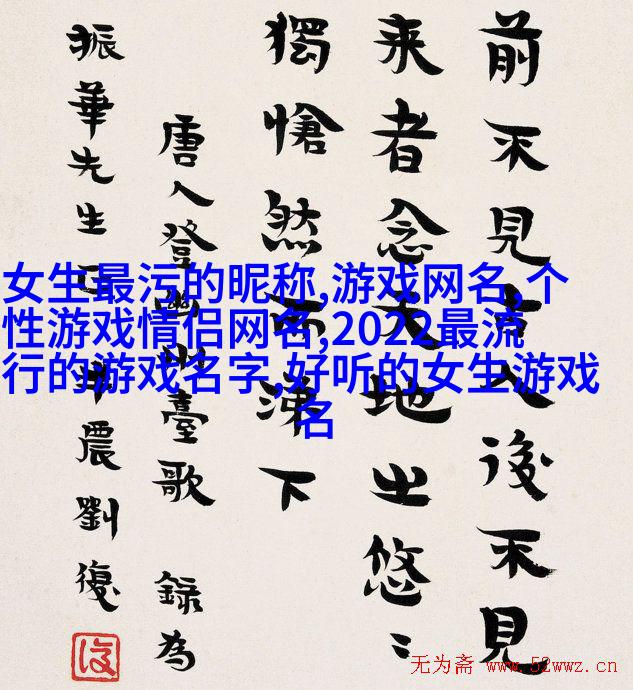 前不見古人後不見
来者念天地之悠〻
獨愴然而涕下
唐人登幽州臺歌 錄為
振華先生 農劉復
女生最污的昵称,游戏网名,个
性游戏情侣网名,2022最流
行的游戏名字,好听的女生游戏
名
无为斋 www.52wwz.cn